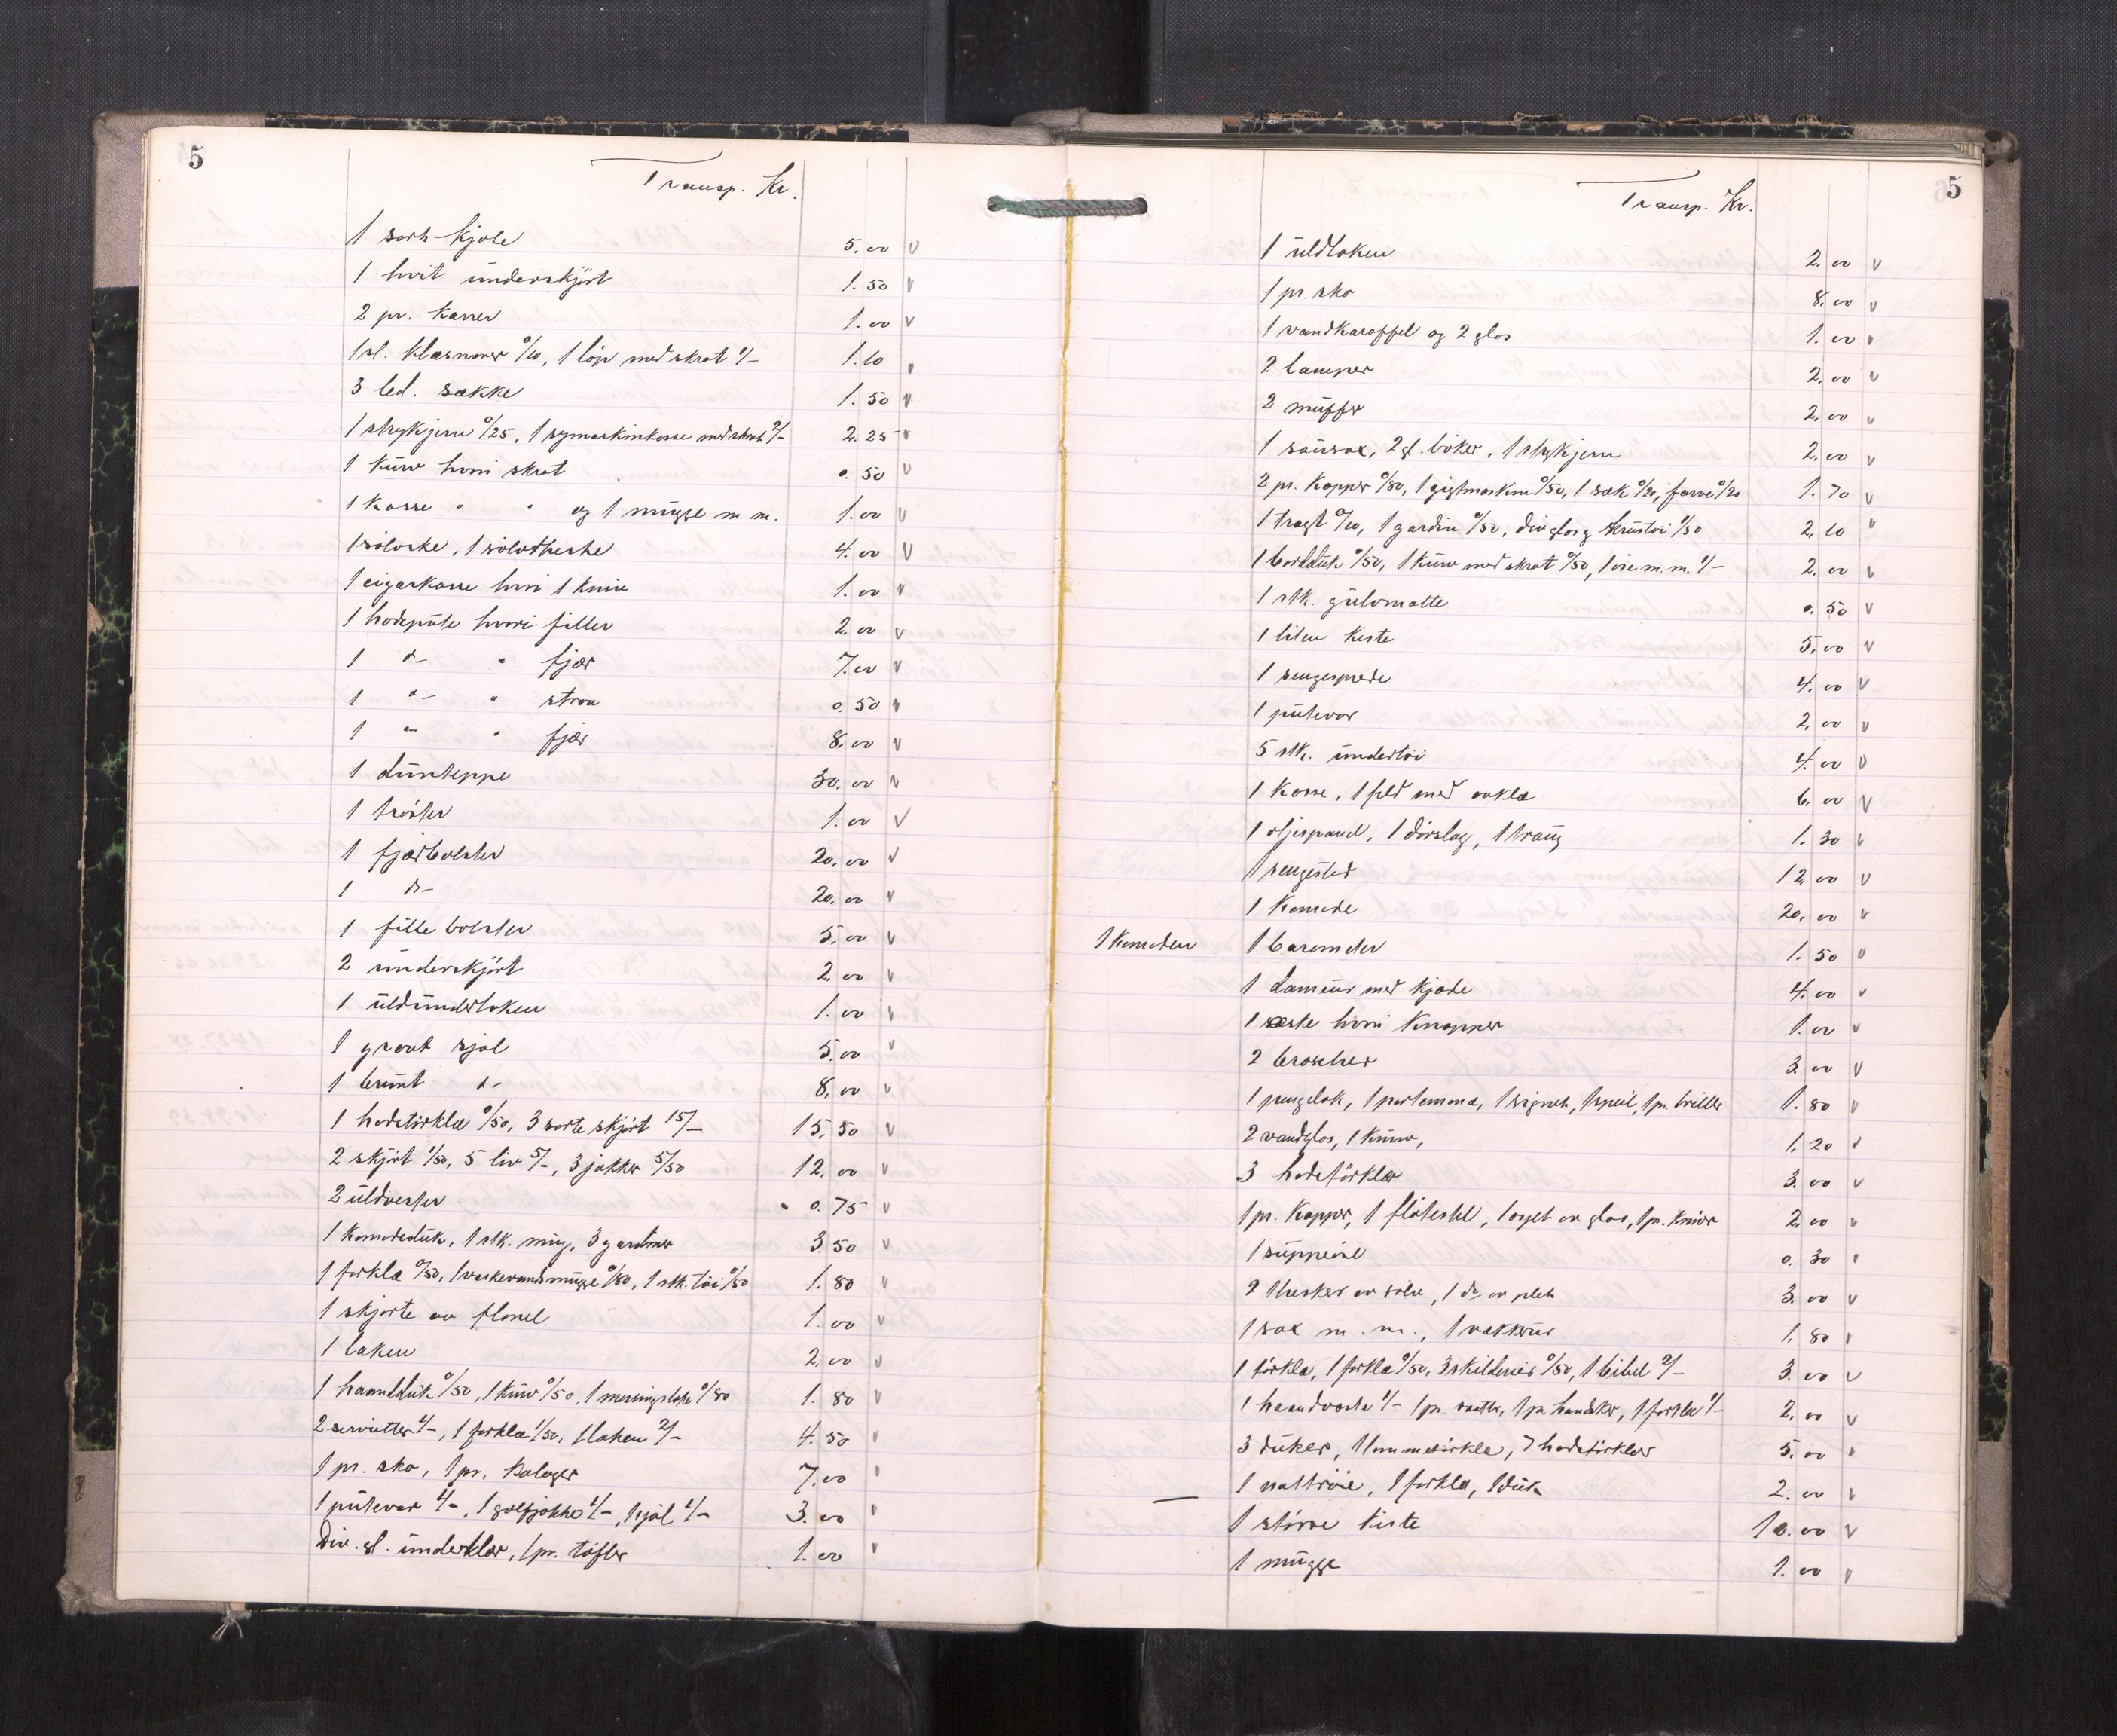 5
Transp. Kr.
1 sort kjole 5.00 v
1 hvit underskjört 1.50 v
2 pr. karrer 1.00 v
1 sl. klæsnorer 0/10, 1 löp med skrot 1/- 1.10 v
3 led. sække 1.50 v
1 strykjern 0/25, 1 symaskinkasse med skrot 2/- 2.25 v
1 kurv hvori skrot 0.50 v
1 kasse " " og 1 mugge m m. 1.00 v
1 söloske, 1 sölvtheske 4.00 v
1 cigarkasse hvori 1 kniv 1.00 v
1 hodepute hvori filler 2.00 v
1 do " fjær 7.00 v
1 " " straa 0.50 v
1 " " fjær 8.00 v
1 dünteppe 30.00 v
1 tröster 1.00 v
1 fjærbolster 20.00 v
1 do 20.00 v
1 fille bolster 5.00 v
2 underskjört 2.00 v
1 uldunderlaken 1.00 v
1 graat sjal 5.00 v
1 brunt do 8.00 v
1 hodetörklæ 0/50, 3 sorte skjört 15/- 15.50 v
2 skjört 1/50, 5 liv 5/-, 3 jakker 5/50 12.00 v
2 uldvester 0.75 v
1 komodeduk, 1 stk. 3 gardiner 3.50 v
1 forklæ 0/50, 1 vaskevandsmugge 0/80, 1 stk. töi 0/50 1.80 v
1 skjorte av flonel 1.00 v
1 laken 2.00 v
1 0/50, 1 kurv 0/50, 1 0/80 1.80 v
2 servietter 1/-, 1 forklæ 1/50, 1 laken 2/- 4.50 v
1 pr. sko, 1 pr. kalosjer 7.00 v
1 putevar 1/-, 1 golfjakke 1/-, 1 sjal 1/- 3.00 v
Div. sl. underklær, 1 pr. töfler 1.00 v
5
Transp. Kr.
1 uldlaken 2.00 v
1 pr. sko 8.00 v
1 vandkaraffel og 2 glas 1.00 v
2 lamper 2.00 v
2 muffer 2.00 v
1 sausax, 2 gl. böker, 1 strykjern 2.00 v
2 pr. kopper 0/80, 1 gigtmaskine 0/50, 1 sæk 0/20, farve 0/20 1.70 v
1 tragt 0/10, 1 gardin 0/50, div glas g krustöi 1/50 2.10 v
1 bordduk 0/50, 1 kurv med skrot 0/50, 1 øse m.m. 1/- 2.00 v
1 stk. gulvmatte 0.50 v
1 liten kiste 5.00 v
1 sengesprede 4.00 v
1 putevar 2.00 v
5 stk. undertöi 4.00 v
1 kasse, 1 feld med aaklæ 6.00 v
1 oljespand, 1 dörslag, 1 traug 1.30 v
1 sengested 12.00 v
1 komode 20.00 v
I komoden 1 barometer 1.50 v
1 dameur med kjæde 4.00 v
1 æske hvori knapper 1.00 v
2 broscher 3.00 v
1 pungelok, 1 portemoné, 1 signet, 1 speil, 1 pr. briller 1.80 v
2 vandglas, 1 kurv, 1.20 v
3 hodetörklær 3.00 v
1 pr. kopper, 1 flöteskl, 1 asjet av glas, 1 pr. kniver 2.00 v
1 suppeöse 0.30 v
2 theskeer av sölv, 1 do av plet 3.00 v
1 sax m.m., 1 vækkeur 1.80 v
1 törklæ, 1 forklæ 0/50, 3 skilderier 0/50, 1 bibel 2/- 3.00 v
1 haandvæske 1/- 1 pr. vanter, 1 pr. handsker, 1 forklæ 1/- 2.00 v
3 duker, 1 lommetörklæ, 7 hodetörklær 5.00 v
1 nattröie, 1 forklæ, 1 duk 2.00 v
1 större kiste 10.00 v
1 mugge 1.00 v